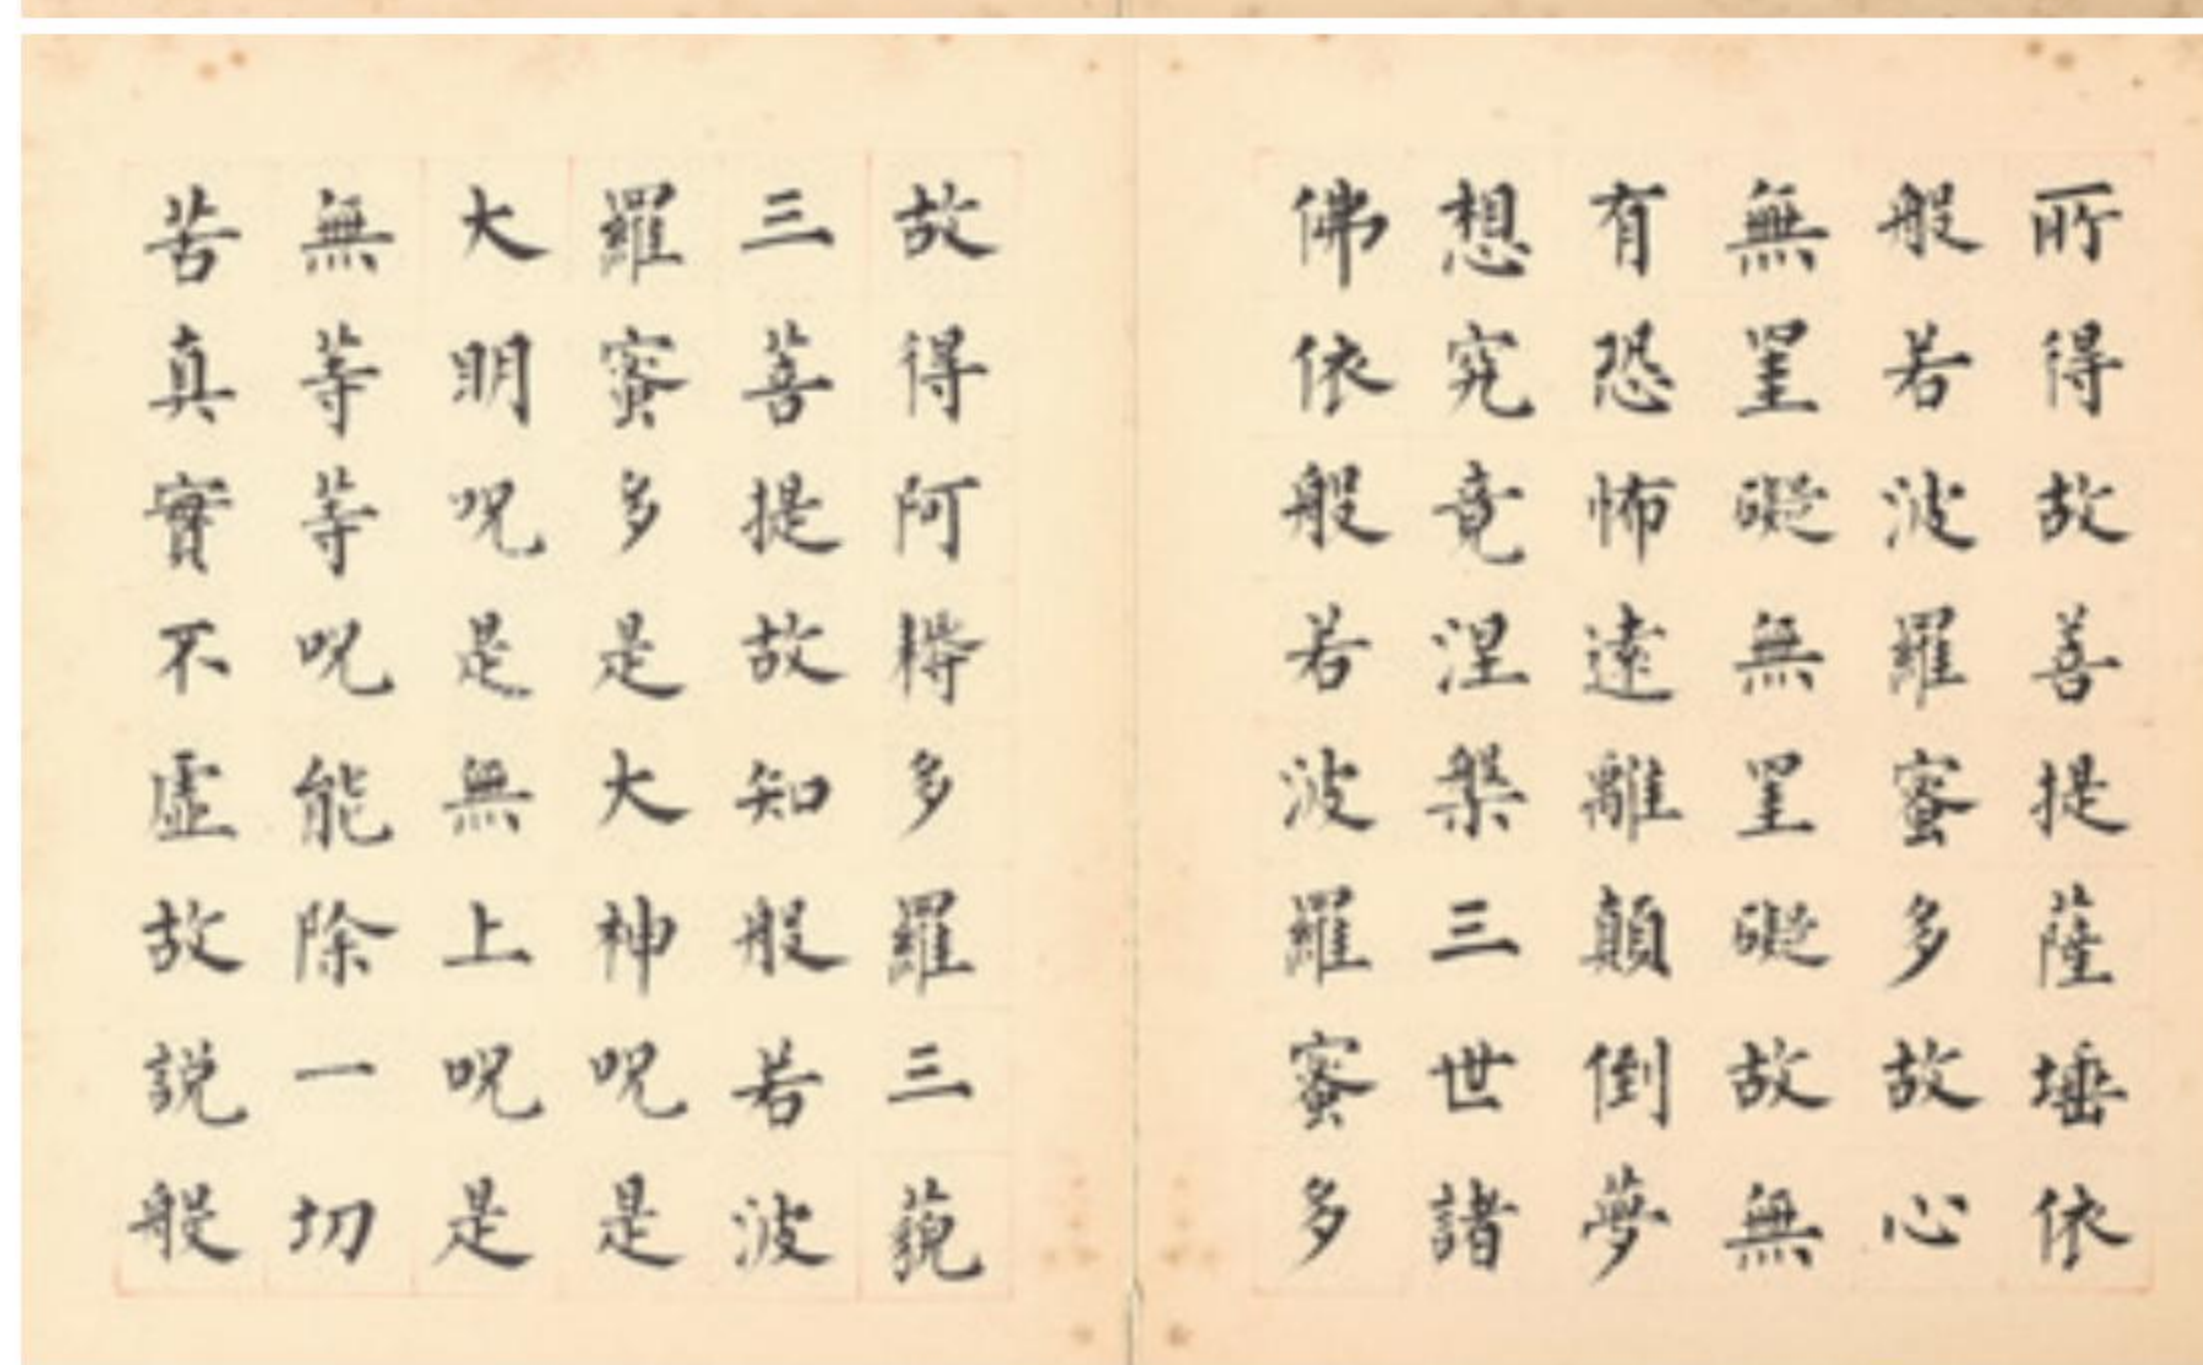 所得故菩提薩埵依
般若波羅蜜多故心
無罣礙無罣礙故無
有恐怖遠離顛倒夢
想究竟涅槃三世諸
佛依般若波羅蜜多
故得阿耨多羅三藐
三菩提故知般若波
羅蜜多是大神呪是
大明呪是無上呪是
無等等呪能除一切
苦真實不虛故說般